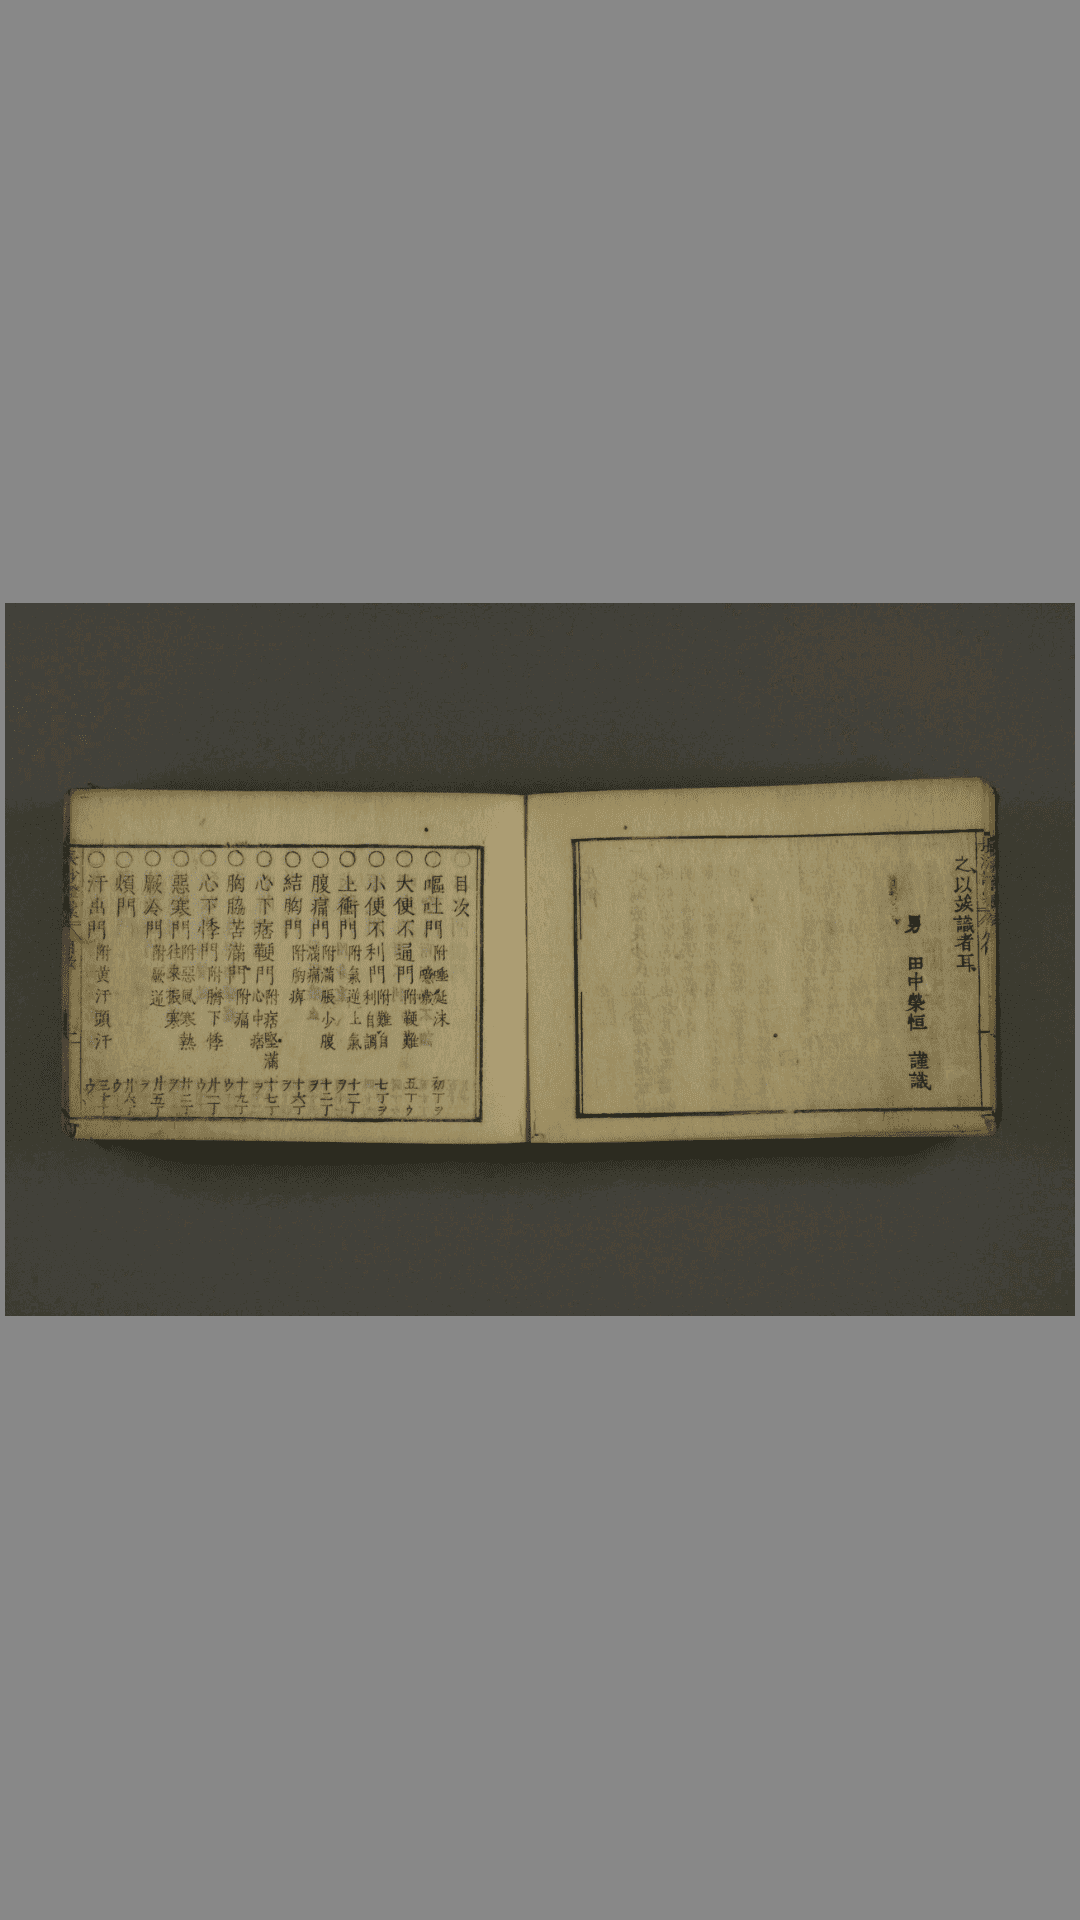 之以竢識者耳
男 田中榮恒 謹識
目次
○嘔吐門 附唾涎沫 噫噦 初丁ヲ
○大便不通門 附鞕難 五丁ウ
○小便不利門 附難自利自調 七丁ヲ
○上衝門 附氣逆上氣 十一丁ヲ
○腹痛門 附滿脹少腹滿痛 十二丁ヲ
○結胸門 附胸痺 十六丁ヲ
○心下痞鞕門 附痞堅滿心中痞 十七丁ヲ
○胸脇苦滿門 附痛 十九丁ウ
○心下悸門 附臍下悸 廿一丁ウ
○惡寒門 附惡風寒熱往來振寒 廿二丁ヲ
○厥冷門 附厥逆 廿五丁ヲ
○煩門 廿八丁ウ
○汗出門 附黄汗頭汗 三十丁ウ